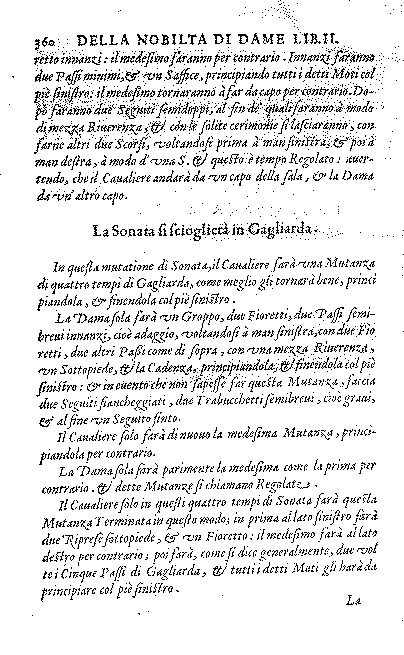 360 DELLA NOBILTA DI DAME LIB. II.
retto innanzi : il medesimo faranno per contrario . Innanzi faranno
due Passi minimi, & vn Saffice, principiando tutti i detti Moti col
piè sinistro: il medesimo tornaranno à far da capo per contrario. Do-
pò faranno due Seguiti semidoppi, al fin de' quali faranno à modo
di mezza Riuerenza, & con le solite cerimonie si lasciaranno, con
farne altri due Scorsi, voltandosi prima à man sinistra, & poi à
man destra, à modo d'vna S. & questo è tempo Regolato : auer-
tendo, che il Caualiere andarà da vn capo della sala, & la Dama
da vn' altro capo.
La Sonata si scioglierà in Gagliarda.
In questa mutatione di Sonata, il Caualiere farà vna Mutanza
di quattro tempi di Gagliarda, come meglio gli tornarà bene, princi
piandola, & finendola col piè sinistro.
La Dama sola farà vn Groppo, due Fioretti, due Passi semi-
breui innanzi, cioè adaggio, voltandosi à man sinistra, con due Fio
retti, due altri Passi come di sopra, con vna mezza Riuerenza,
vn Sottopiede, & la Cadenza, principiandola, & finendola col piè
sinistro : & in euento che non sapesse far questa Mutanza, faccia
due Seguiti fiancheggiati, due Trabucchetti semibreui, cioè graui,
& al fine vn Seguito finto.
Il Caualiere solo farà di nuouo la medesima Mutanza, princi-
piandola per contrario.
La Dama sola farà parimente la medesima come la prima per
contrario . & dette Mutanze si chiamano Regolate.
Il Caualiere solo in questi quattro tempi di Sonata farà questa
Mutanza Terminata in questo modo; in prima al lato sinistro farà
due Riprese sottopiede, & vn Fioretto : il medesimo farà al lato
destro per contrario ; poi farà, come si dice generalmente, due vol
te i Cinque Passi di Gagliarda, & tutti i detti Moti gli harà da
principiare col piè sinistro.
La